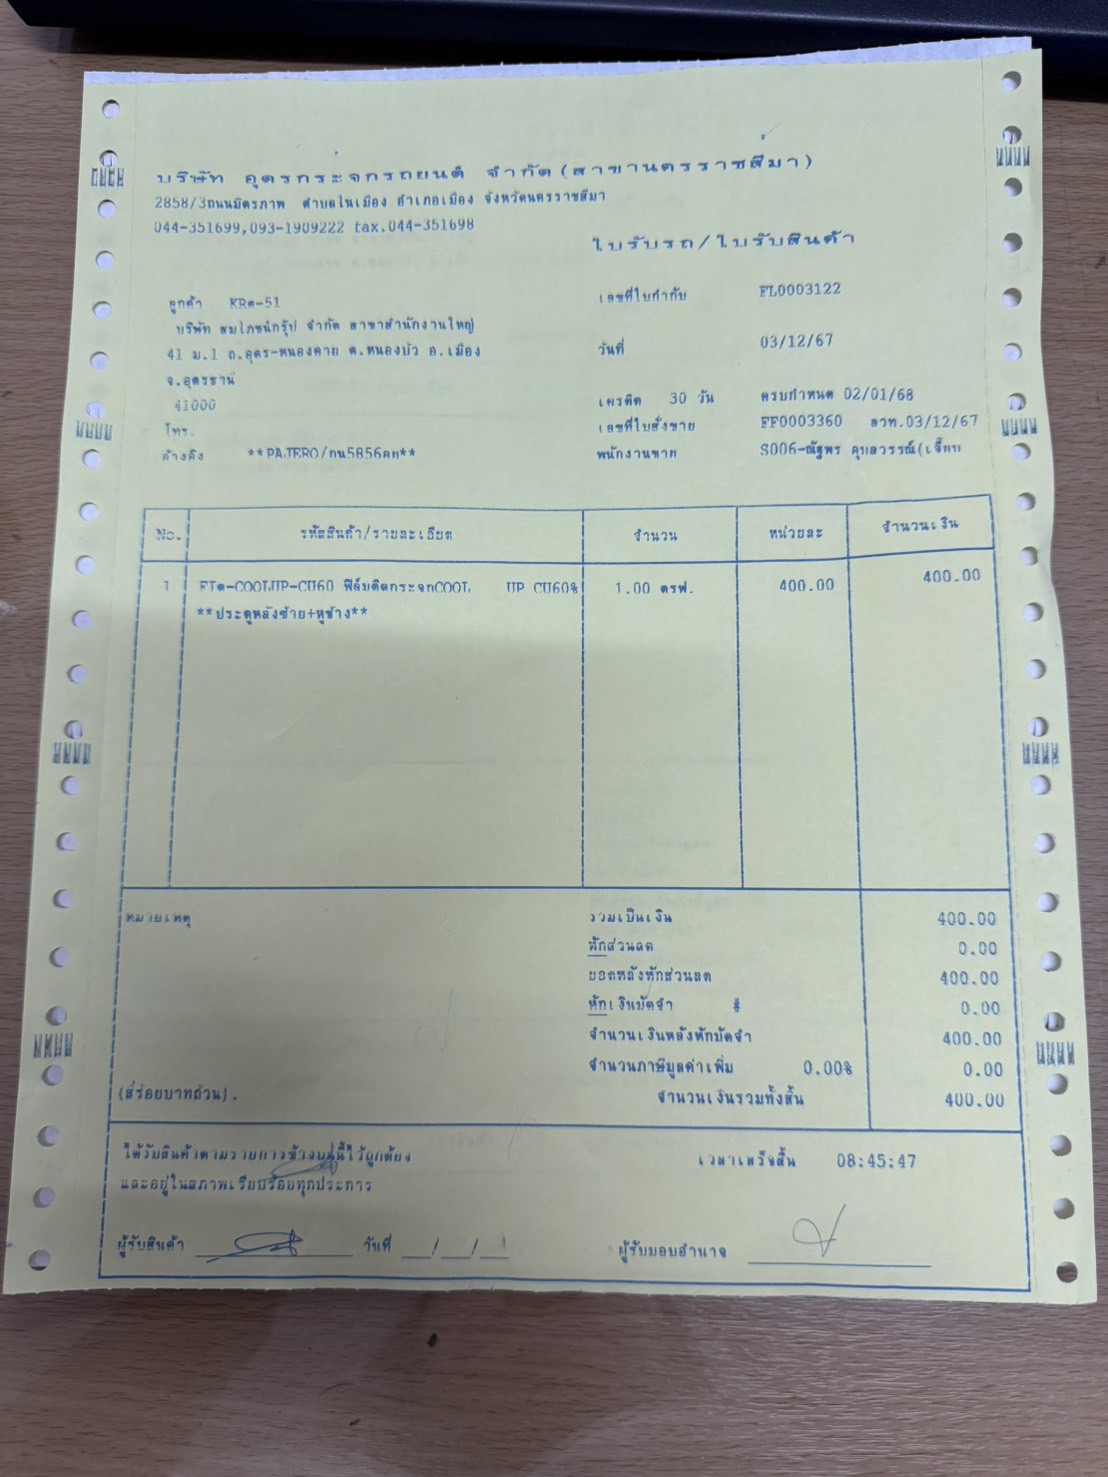 บริษัท อุดรกระจกรถยนต์ จำกัด(สาขานครราชสีมา)
2858/3ถนนมิตรภาพ ตำบลในเมือง อำเภอเมือง จังหวัดนครราชสีมา
044-351699,093-1909222 tax.044-351698
ใบรับรถ/ใบรับสินค้า
ลูกค้า KRด-51
เลขที่ใบกำกับ FL0003122
บริษัท สมโภชน์กรุ๊ป จำกัด สาขาสำนักงานใหญ่
41 ม.1 ถ.อุดร-หนองคาย ต.หนองบัว อ.เมือง
วันที่ 03/12/67
จ.อุดรธานี
41000
เครดิต 30 วัน ครบกำหนด 02/01/68
โทร.
เลขที่ใบสั่งขาย FF0003360 ลวท.03/12/67
อ้างถึง **PAJERO/กน5856คย**
พนักงานขาย S006-ณัฐพร
No. รหัสสินค้า/รายละเอียด จำนวน หน่วยละ จำนวนเงิน
1 FIด-COOLUP-CU60 ฟิล์มติดกระจกCOOL UP CU60% 1.00 ตรฟ. 400.00 400.00
**ประตูหลังซ้าย+หูช้าง**
หมายเหตุ
รวมเป็นเงิน 400.00
หักส่วนลด 0.00
ยอดหลังหักส่วนลด 400.00
หักเงินมัดจำ # 0.00
จำนวนเงินหลังหักมัดจำ 400.00
จำนวนภาษีมูลค่าเพิ่ม 0.00% 0.00
(สี่ร้อยบาทถ้วน).
จำนวนเงินรวมทั้งสิ้น 400.00
ได้รับสินค้าตามรายการข้างบนนี้ไว้ถูกต้อง
เวลาเสร็จสิ้น 08:45:47
และอยู่ในสภาพเรียบร้อยทุกประการ
ผู้รับสินค้า วันที่ __/__/__
ผู้รับมอบอำนาจ